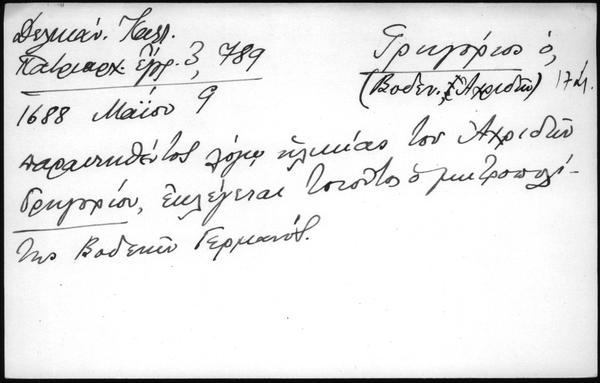 Δελικάν. Καλ.
Πατριαρχ. ἔγγρ. 3, 789
Γρηγόριος ὁ,
(Βοδεν., Ἀχριδῶν) 17 αἰ.
1688 Μαΐου 9
παραιτηθέντος λόγῳ ἡλικίας τοῦ Ἀχριδῶν
Γρηγορίου, ἐκλέγεται τοιοῦτος ὁ μητροπολί-
της Βοδενῶν Γερμανός.